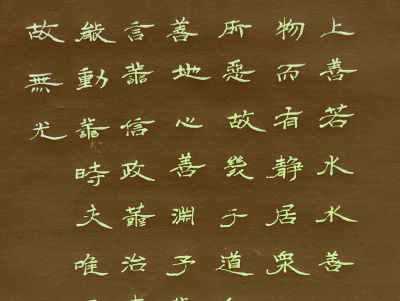 上善若水水善
物而有静居衆
所惡故幾于道
善地心善淵予
言善信政善治
能動善時夫唯
故無尤